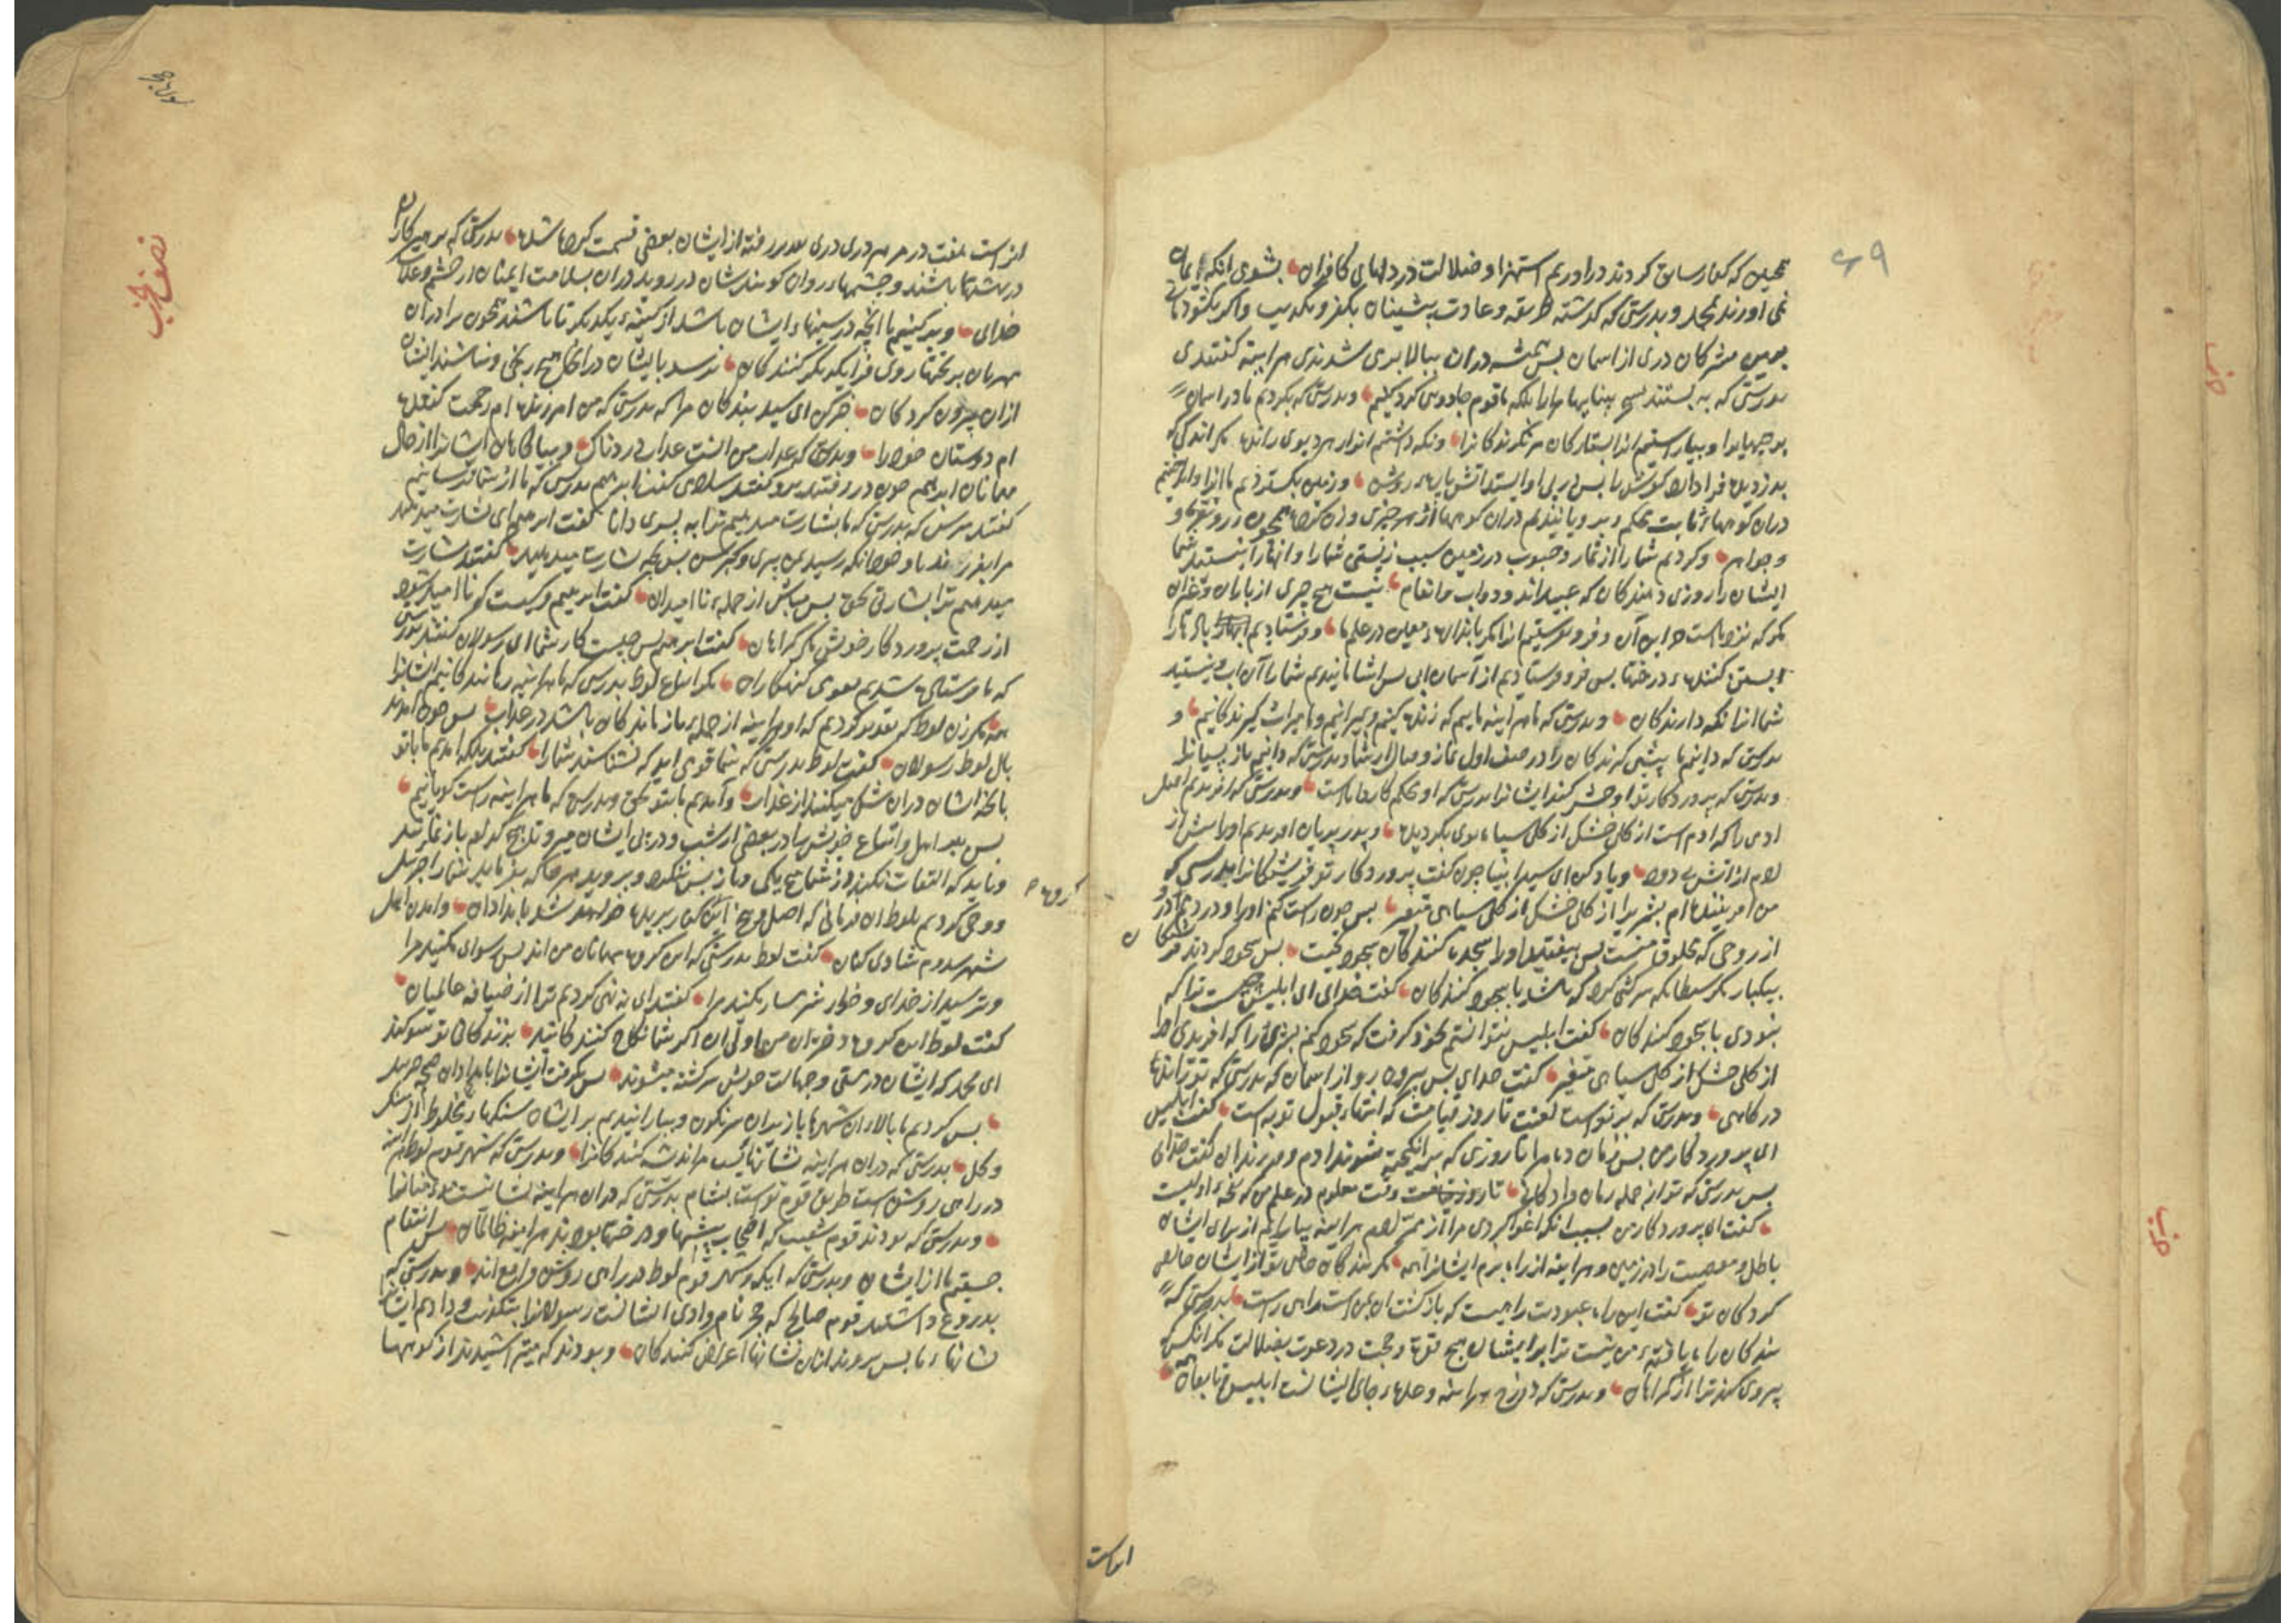 ۶۹
همچنین که کفار سابق کردند در اوریم استهزا و ضلالت در دلهای کافران بشوی انکه ایمان
نمی اورند بمحمد و بدرستی که کذشته طریقه و عادت پیشینان بکفر و تکذیب واکر بکشودمانی
برین مشرکان دری از اسمان پس همیشه دران ببالا بری شدندی هراینه کفتندی
بدرستی که به بستند بینایهای مارا بلکه ما قوم جادویی کرد کنیم و بدرستی که بکردیم ما در اسمان
برجهایرا و بیاراستیم انرا بستارکان مر نکرندکانرا و نکه داشتیم انرا از هر دیوی رانده مکر انکس که
بدزدیده فرا دارد کوش را پس در پی او ایستد اتش پاره روشن و زمین بکستردیم ما انرا و انداختیم
دران کوههای ثابت محکم و برویانیدیم دران کوهها از هر چیزی وزن کرده همچون زر و نقره و
و جواهر و کردیم شما را از ثمار و حبوب در زمین سبب زیستی شما را و انها را نیستید شما
ایشان را روزی دهندکان که عبیداند و دواب و انعام نیست هیچ چیزی از باران و غیر ان
مکر که نزد ماست خزاین آن و فرو نفرستیم انرا مکر باندازه معین در علم ما و فرستادیم بادهارا
ابستن کننده درختها پس فرو فرستادیم از آسمان ابی پس اشامانیدیم شما را آن اب و نیستید
شما انرا نکه دارندکان و بدرستی که ما هراینه ماییم که زنده کنیم و بمیرانیم و ما میراث کیرندکانیم و
بدرستی که دانیم ما پیشی کیرندکان را در صف اول نماز و مثال ان از شما و بدرستی که دانیم باز پسیانرا
و بدرستی که پروردکار تو او حشر کند ایشانرا بدرستی که او محکم کار داناست و بدرستی که افریدیم اصل
ادمی را که ادم است از کل خشک از کل سیاه بوی بکردیده و پدر پریان افریدیم او را پیش از
ادم از اتش بی دود و یاد کن ای سید انبیا چون کفت پروردکار تو فریشتکانرا بدرستی که
من افریننده ام بشریرا از کل خشک از کل سیاهی متغیر پس چون راست کنم او را و دردمم در او
از روحی که مخلوق منست پس بیفتید او را سجده کنندکان سجود تحیت پس سجود کردند فرشتکان
بیکبار مکر شیطان که سرکشی کرد که باشد با سجود کنندکان کفت خدای ای ابلیس چیست ترا که
نبودی با سجود کنندکان کفت ابلیس نتوانستم بخود کرفت که سجود کنم بشری را که افریدی او را
از کلی خشک از کل سیاهی متغیر کفت خدای پس بیرون رو از اسمان که بدرستی که تو رانده
درکاهی و بدرستی که بر تو است لعنت تا روز قیامت که انتهاء قبول توبه است کفت ابلیس
ای پروردکار من پس زمان ده مرا تا روزی که برانکیخته شوند ادم و فرزندان کفت خدای
پس بدرستی که تو از جمله زمان دادکانی تا روز وقت معلوم در علم من که نفخه اولیست
کفت ای پروردکار من بسبب انکه اغوا کردی مرا از ممر ادم هراینه بیارایم از برای ایشان
باطل و معصیت را در زمین و هراینه از راه برم ایشانرا همه مکر بندکان خاص تو از ایشان خالص
کردکان تو کفت این راه عبودت راهیست که بازکشت ان بمن است راهی راست بدرستی که
بندکان راه یافته من نیست ترا بر ایشان هیچ قوة و حجت در دعوت بضلالت مکر انکس که
پیروی کند ترا از کمراهان و بدرستی که دوزخ هراینه وعده جای ایشانست ابلیس و تابعان
انراست
نصف حزب
انراست هفت در مر هر دری دری بعد در رفته از ایشان بعضی قسمت کرده شده بدرستی که پرهیزکاران
در بهشتها باشند و چشمهاء روان کویند شان در روید دران بسلامت ایمنان از خشم و عذاب
خدای و برکنیم ما انچه در سینهاء ایشان باشد از کینه یکدیکر تا باشند همچون برادران
مهربان بر تختها روی فرا یکدیکر کنندکان نرسد بایشان دران هیچ رنجی و نباشند ایشان
ازان بیرون کردکان خبر کن ای سید بندکان مرا که بدرستی که من امرزنده ام رحمت کننده
ام دوستان خود را و بدرستی که عذاب من انست عذاب دردناک و بیاکاهان ایشانرا از حال
مهمانان ابرهیم چون در رفتند برو کفتند سلام کفت ابرهیم بدرستی که ما از شما ترسانیم
کفتند مترس که بدرستی که ما بشارت میدهیم ترا به پسری دانا کفت ابرهیم ای بشارت میدهید
مرا بفرزند با وجود انکه رسید بمن پیری و کبر سن پس بچه بشارت میدهید کفتند بشارت
میدهیم ترا بشارتی بحق پس مباش از جمله نا امیدان کفت ابرهیم و کیست که نا امید شود
از رحمت پروردکار خویش مکر کمراهان کفت ابرهیم پس چیست کار شما ای رسولان کفتند بدرستی
که ما فرستاده شدیم بسوی قوم کنهکاران مکر اتباع لوط بدرستی که ما هراینه رهانندکانیم ایشانرا
همه مکر زن لوط که تقدیر کردیم که او هراینه از جمله باز ماندکان باشد در عذاب پس چون امدند
بال لوط رسولان کفت لوط بدرستی که شما قومی اید که نشناسند شما را کفتند بلکه امدیم ما بتو
بانچه ایشان دران شک میکنند از عذاب و آمدیم ما بتو بحق و بدرستی که ما هراینه راست کویانیم
پس ببر اهل و اتباع خویش را در بعضی از شب و در پی ایشان میرو تا هیچ کدام باز نماند
و باید که التفات نکند از شما هیچ یکی و باز پس ننکرد و بروید هر جا که بفرماید شما را جبرئیل
ووحی کردیم بلوط ان فرمانی که اصل و بیخ این کروه بریده خواهد شد بامدادان و امدند اهل
شهر سدوم شادی کنان کفت لوط بدرستی که این کروه مهمانان من اند پس رسوای مکنید مرا
و بترسید از خدای و خوار و شرمسار مکنید مرا کفتند ای نه نهی کردیم ترا از ضیافه عالمیان
کفت لوط این کروه دختران من اولی ان اکر شما نکاح کنندکانید بزندکانی تو سوکند
ای محمد که ایشان در مستی و جهالت خویش سرکشته میشوند پس بکرفت ایشانرا بامدادان صیحه جبرئیل
پس کردیم ما بالای ان شهرها با زیران سرنکون و ببارانیدیم بر ایشان سنکهاء مخلوط از سنک
و کل بدرستی که دران هراینه نشانهائیست مر اندیشه کنندکانرا و بدرستی که شهر قوم لوط هراینه
در راهی روشن است طریق قوم تو است بشام بدرستی که دران هراینه نشانیست مؤمنانرا
و بدرستی که بودند قوم شعیب که اصحاب بیشها و درختها بودند هراینه ظالمان پس انتقام
جستیم ما از ایشان و بدرستی که ایکه و شهر قوم لوط در راهی روشن واقع اند و بدرستی که
بدروغ داشتند قوم صالح که حجر نام وادی ایشانست رسولانرا بتکذیب و دادیم ایشانرا
نشانهاء ما پس بودند ازان نشانها اعراض کنندکان و بودند که میتراشیدند از کوهها